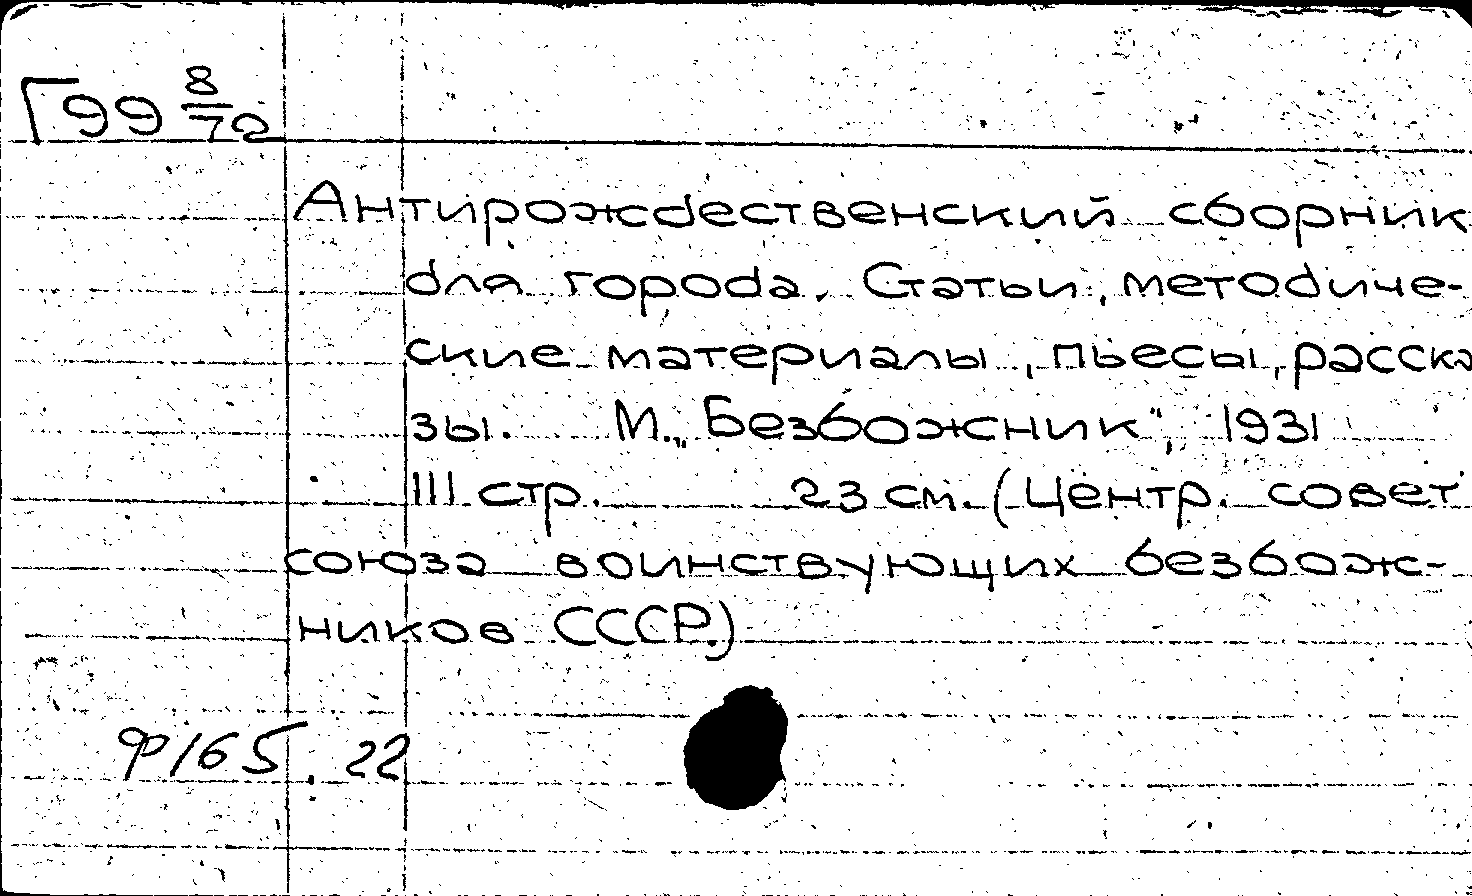 Г99 8/72
Антирождественский сборник
для города. Статьи, методиче-
ские материалы, пьесы, расска
зы. М. „Безбожник“, 1931
111 стр. 23 см. (Центр. совет
союза воинствующих безбож-
ников СССР.)
Ф165.22